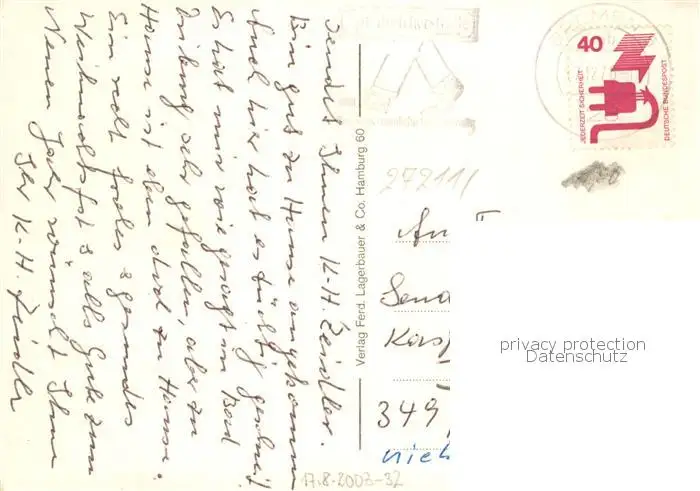 sendet Ihnen K-H. Zeidler.
Bin gut zu Hause angekommen
Auch hier hat es tüchtig geschneit
Es hat mir wie gesagt in Bad
sehr gefallen, aber zu
Hause ist eben doch zu Hause.
Ein recht frohes & gesundes
Weihnachtsfest & alles Gute zum
Neuen Jahr wünscht Ihnen
Ihr K-H. Zeidler
Verlag Ferd. Lagerbauer & Co. Hamburg 60
40
JEDERZEIT SICHERHEIT
DEUTSCHE BUNDESPOST
272111
An
Send
349
nieh
privacy protection
Datenschutz
17.8-2003-32